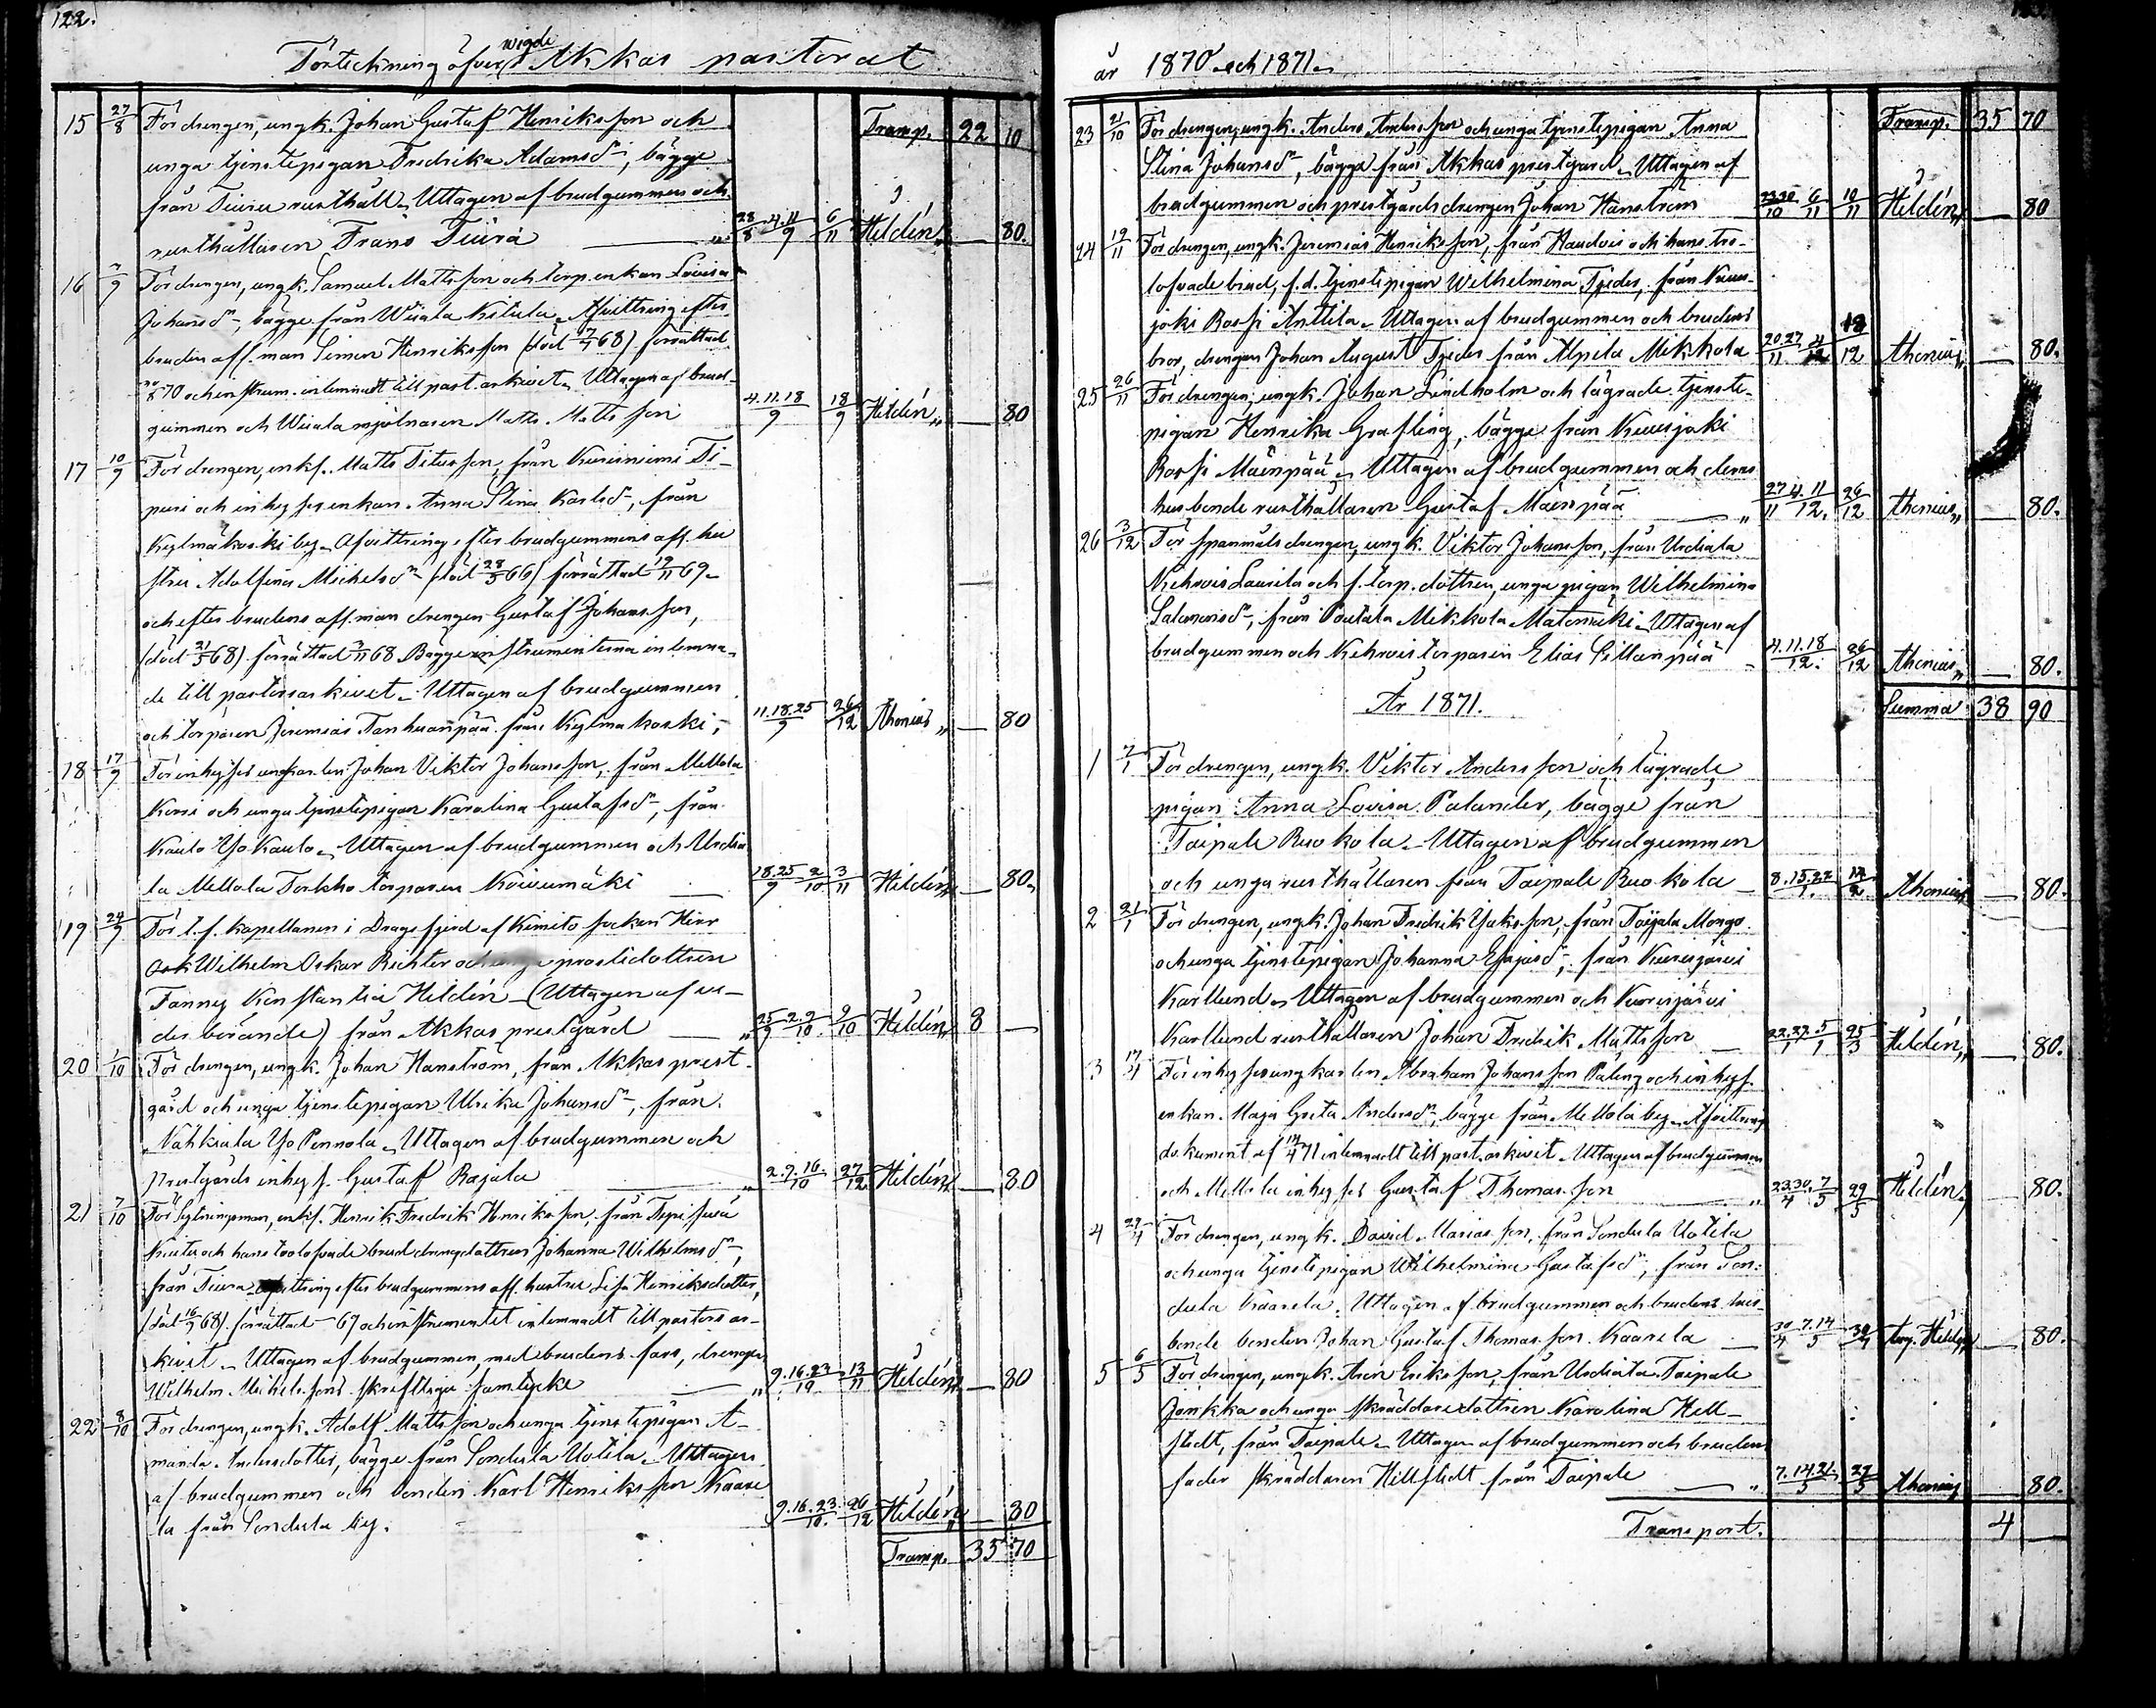 122.
Förteckning öfver wigde i Akkas pastorat
15 27/8 För drengen, ungk. Johan Gustaf Henriksson och Transp. 22 10
unga tjenstepigan Fredrika Adamsdr, bägge
från Tiura rusthåll. Uttagen af brudgummen och
rusthållaren Frans Tiura 28/8 4.11/9 6/11 Heldén — 80.
16 3/9 För drengen, ungk. Samuel Mattsson och torp.enkan Lovisa
Johansdr, bägge från Wiiala Kitula. Afvittring efter
brudens afl. man Simon Henriksson (död 68) förrättad
70 och instrum. inlemnadt till past.arkivet. Uttagen af brud-
gummen och Wiiala mjölnaren Matts Mattsson 4.11.18/9 18/9 Heldén — 80
17 10/9 För drengen, enkl. Matts Titusson, från Kurisniemi Ti-
puri och inhys.enkan Anna Stina Karlsdr, från
Kylmäkoski by. Afvittring efter brudgummens afl. hu-
stru Adolfina Michelsdr (död 28/5 66) förrättad 19/11 69.
och efter brudens afl. man drengen Gustaf Johansson,
(död 21/5 68) förrättad 3/11 68. Bägge instrumenterna inlemna-
de till pastorsarkivet. Uttagen af brudgummen
och torparen Jeremias Tanhuanpää från Kylmäkoski 11.18.25/9 26/12 Thonius — 80
18 17/9 För inhyses ungkarlen Johan Viktor Johansson, från Mellola
Kirsi och unga tjenstepigan Karolina Gustafsdr, från
Kaulo Yo Kaulo. Uttagen af brudgummen och Urdia-
la Mellola Torkko torparen Koivumäki 18.25/9 2/10 3/11 Heldén — 80.
19 24/9 För t.f. kapellanen i Dragsfjerd af Kimito socken Herr
Wilhelm Oskar Richter och unga prostdottren
Fanny Konstantia Heldén. (Uttagen af ve-
der börande) från Akkas prestgård 25/9 2.9/10 9/10 Heldén 8 —
20 1/10 För drengen, ungk. Johan Hanström, från Akkas prest-
gård och unga tjenstepigan Ulrika Johansdr, från
Nahkiala Yo Pennola. Uttagen af brudgummen och
prestgårds inhys. Gustaf Rajala 2.9.16/10 27/12 Heldén — 80
21 7/10 För sytningsman, enkl. Henrik Fredrik Henriksson, från
och hans trolofvade brud drengdottren Johanna Wilhelmsdr,
från Tiura. Afvittring efter brudgummens afl. hustru Lisa Henriksdotter,
(död 16/9 68) förrättad — 69 och instrumentet inlemnadt till pastors ar-
kivet. Uttagen af brudgummen, med brudens fars, drengen
Wilhelm Michelssons skriftliga samtycke 9.16.23/10 13/11 Heldén — 80
22 8/10 För drengen, ungk. Adolf Mattsson och unga tjenstepigan A-
manda Andersdotter, bägge från Sondula Uotila. Uttagen
af brudgummen och bonden Karl Henriksson Kaare-
la från Sondula by. 9.16.23/10 26/12 Heldén — 80
Transp. 35 70
år 1870 och 1871.
23 21/10 För drengen, ungk. Anders Andersson och unga tjenstepigan Anna Transp. 35 70
Stina Johansdr, bägge från Akkas prestgård. Uttagen af
brudgummen och prestgårds drengen Johan Hanström 23.30/10 6/11 10/11 Heldén — 80
24 19/11 För drengen, ungk. Jeremias Henriksson, från Haudois och hans tro-
lofvade brud, f.d. tjenstepigan Wilhelmina Tjeder, från Kuus-
joki Rossi Anttila. Uttagen af brudgummen och brudens
bror, drengen Johan August Tjeder från Alpila Mikkola 20.27/11 4/12 18/12 Thonius — 80.
25 26/11 För drengen, ungk. Johan Lindholm och lägrade tjenste-
pigan Henrika Grefling, bägge från Kuusjoki
Rossi Mäenpää. Uttagen af brudgummen och deras
husbonde rusthållaren Gustaf Mäenpää 27/11 4.11/12. 26/12 Thonius — 80.
26 3/12 För spanmålsdrengen, ungk. Viktor Johansson, från Urdiala
Kehrois Laurila och f. torp.dottren, unga pigan Wilhelmina
Salomonsdr, från Poutala Mekkola Matomäki. Uttagen af
brudgummen och Kehrois torparen Elias Sillanpää 4.11.18/12. 26/12 Thonius — 80.
År 1871. Summa 38 90
1 7/1 För drengen, ungk. Viktor Andersson och lägrade
pigan Anna Lovisa Palander, bägge från
Taipale Ruokola. Uttagen af brudgummen
och unga rusthållaren från Taipale Ruokola 8.15.22/1. 12/2 Thonius — 80.
2 21/1 För drengen, ungk. Johan Fredrik Jaksson, från Taipale Mongo
och unga tjenstepigan Johanna Esajasdr, från Kuurisjärvi
Karllund. Uttagen af brudgummen och Kuurisjärvi
Karllund rusthållaren Johan Fredrik Mattsson 22.27/1 5/1 25/3 Heldén — 80.
3 17/4 För inhyses ungkarlen Abraham Johansson Paling och inhys.
enkan Maja Greta Andersdr, bägge från Mellola by. Afvittrings
dokument af 17/4 71 inlemnadt till past.arkivet. Uttagen af brudgummen
och Mellola inhyses Gustaf Thomasson 23.30/4 7/5 29/5 Heldén — 80.
4 29/4 För drengen, ungk. David Mariasson, från Sondula Uotila
och unga tjenstepigan Wilhelmina Gustafsdr, från Son-
dula Kaarela. Uttagen af brudgummen och brudens hus-
bonde bonden Johan Gustaf Thomasson Kaarela 30/4 7.14/5 Aug. Heldén — 80.
5 6/5 För drengen, ungk. Eriksson, från Urdiala Taipale
Jänkkä och unga skräddaredottren Karolina Hell-
stedt, från Taipale. Uttagen af brudgummen och brudens
fader skräddaren Hellstedt från Taipale 7.14.21/5 29/5 Thonius — 80.
Transport. 4 —